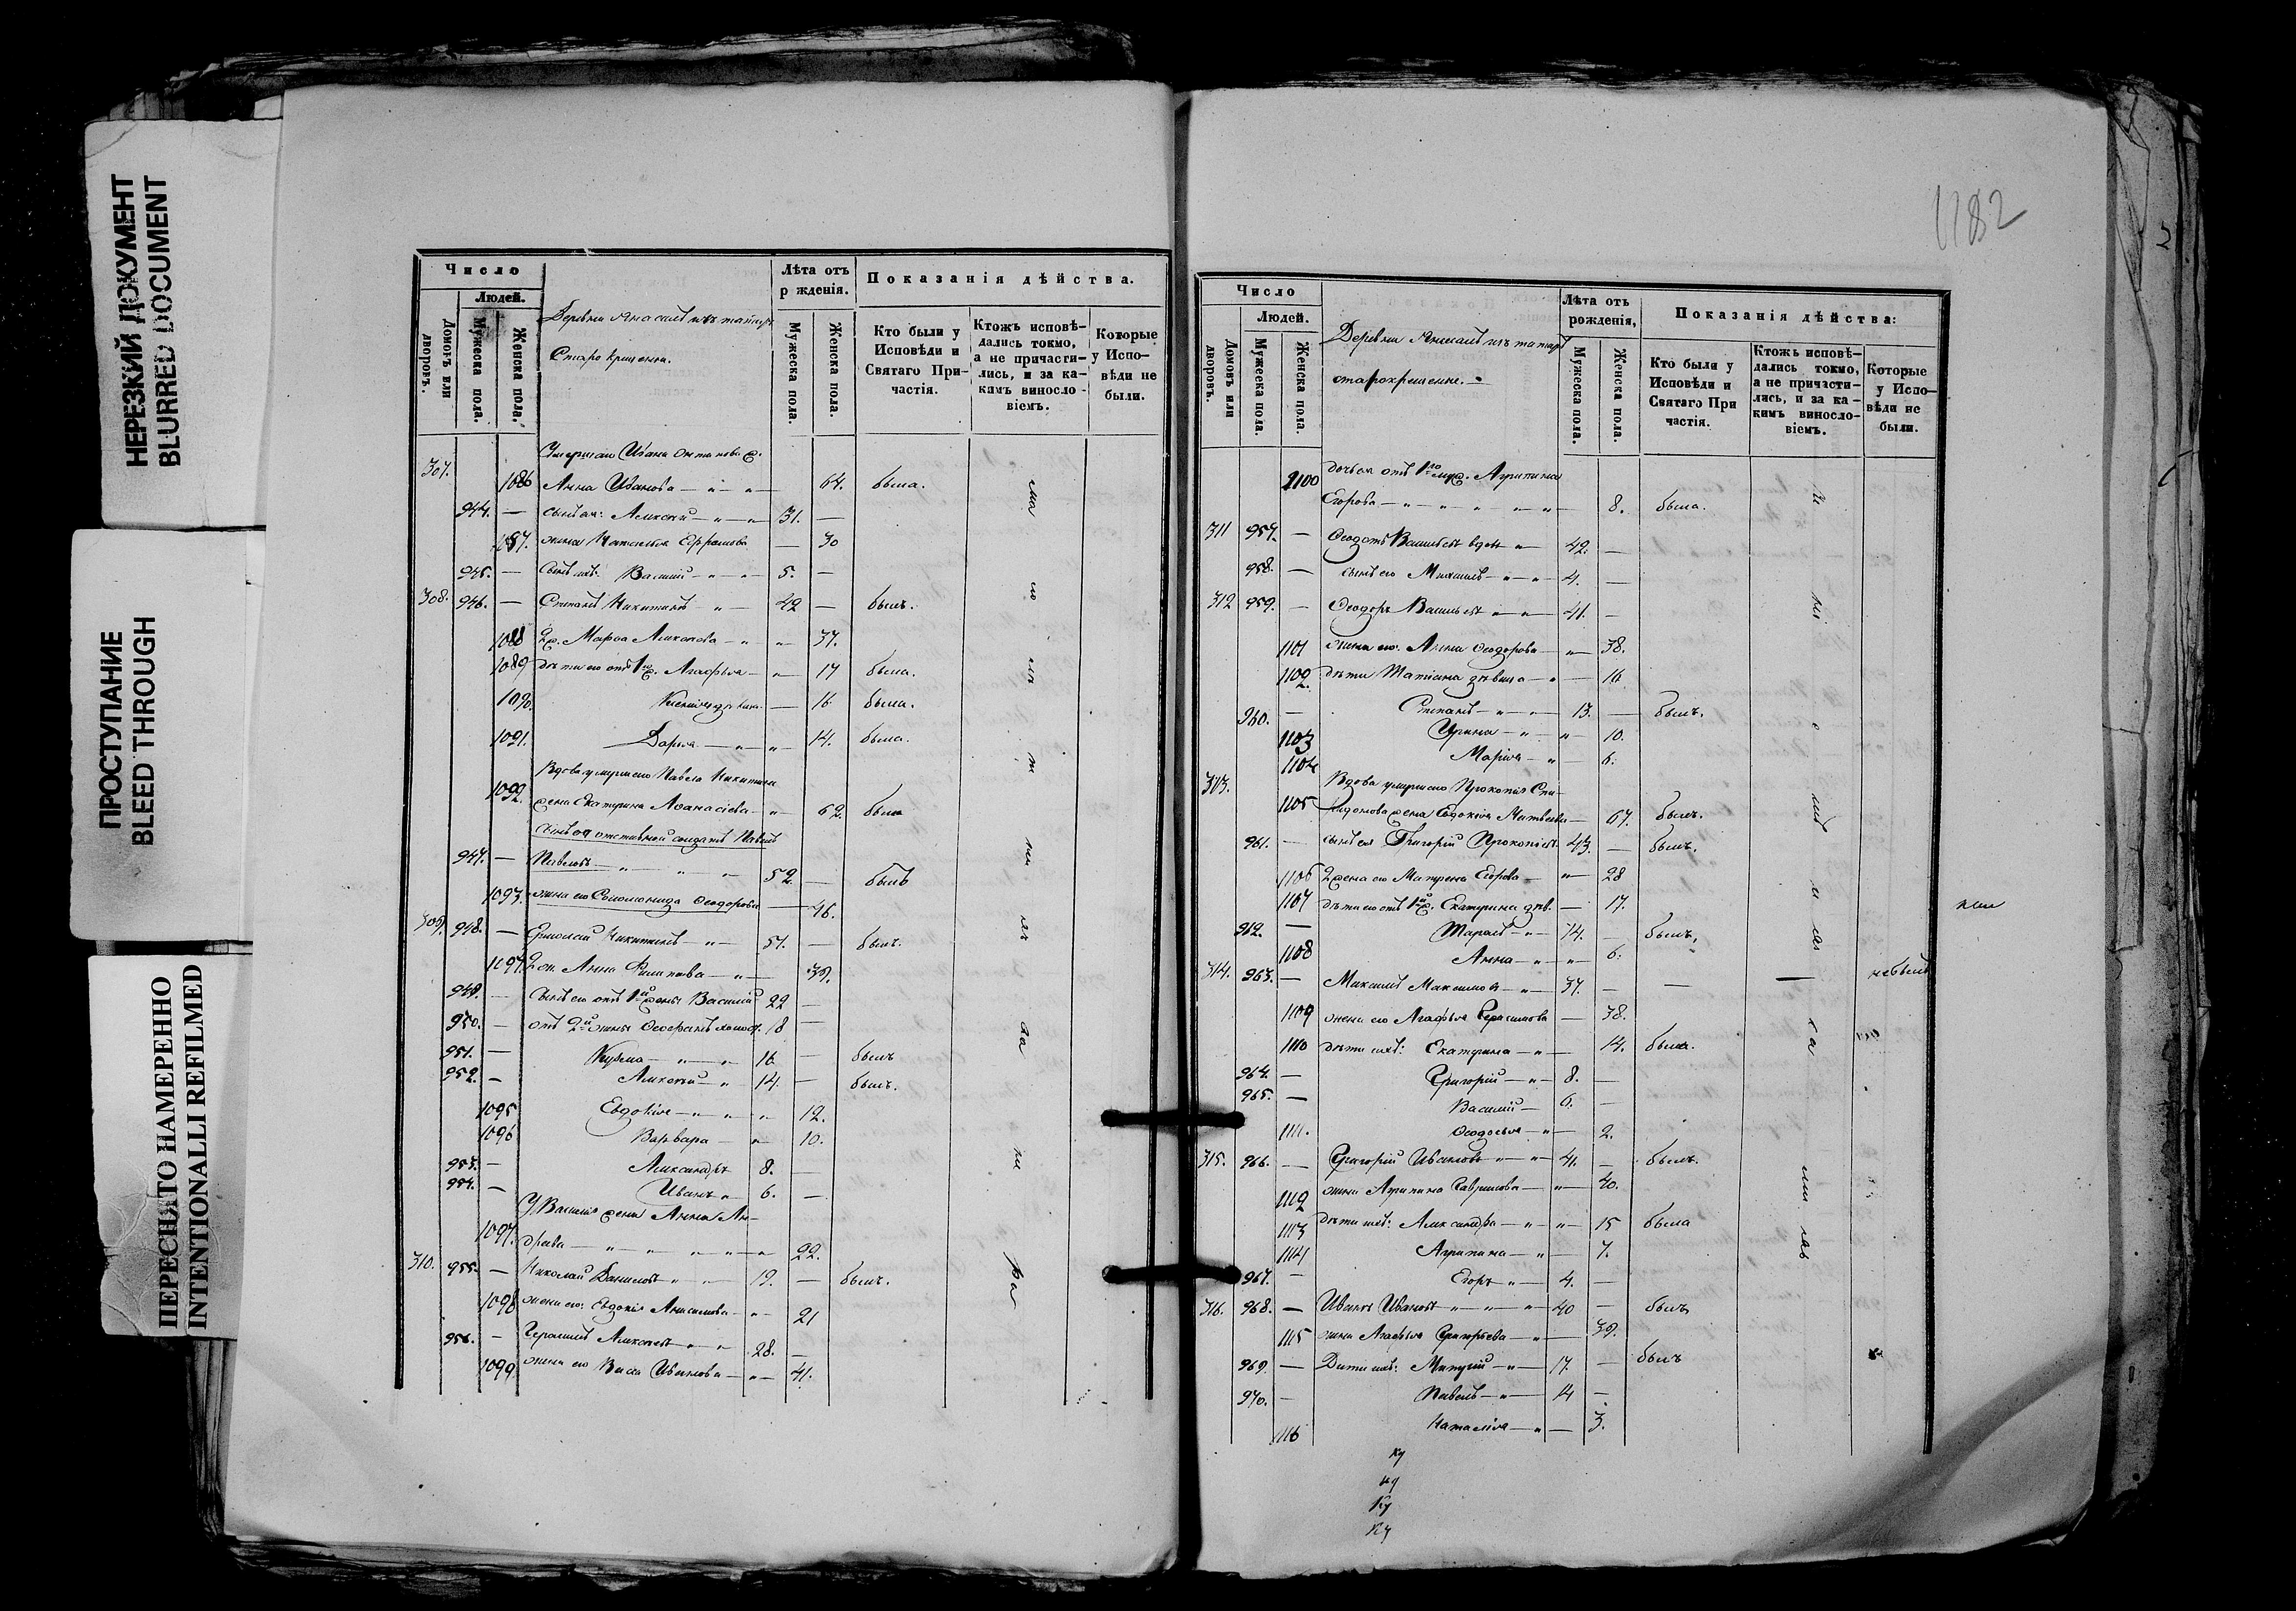 НЕРЕЗКИЙ ДОКУМЕНТ
BLURRED DOCUMENT
ПРОСТУПАНИЕ
BLEED THROUGH
ПЕРЕСНЯТО НАМЕРЕННО
INTENTIONALLI REFILMED
Число
Людей.
Домовъ или дворовъ.
Мужеска пола.
Женска пола.
Деревни татаръ
Старокрещены.
Лѣта отъ
р жденія.
Мужеска пола.
Женска пола.
Показанія дѣйства.
Кто были у
Исповѣди и
Святаго При-
частія.
Ктожъ исповѣ-
дались токмо,
а не причасти-
лись, и за ка-
кимъ винсло-
віемъ.
Которые
у Испо-
вѣди не
были.
Умершаго Ивана ж.
307. 1086 Анна Иванова — " — " — 64. была.
944. — сынъ ея: Алексѣй — " — " — 31. —
1087. жена Наталья Ефремова — 30
945. — Сынъ ихъ: Василій — " — " — 5. —
308. 946. — Степанъ Никитинъ — " — 42 — былъ.
1088 2 ж. Марѳа Алексѣева — " — " — 37.
1089 дѣти его отъ 1й ж. Агафья — " — 17 была.
1090. Ксенія дѣвица — 16 была.
1091. Дарья — " — " — 14. была.
Вдова умершаго Павла Никитина
1092. жена Екатерина Аѳанасіева — " — 62. была
Сынъ ея отставной солдатъ Павелъ
947. — Павловъ — " " " — 52. — былъ
1093. жена его Соломонида Ѳеодорова — 46.
309. 948. — Ермолай Никитинъ — " — 51. — былъ.
1094. 2 ж. Анна Филипова — " — 39.
949. — Сынъ его отъ 1й жены Василій 22 —
950. — отъ 2й жены Ѳеофанъ холост. 18 —
951. — Кузма — " — " 16 — былъ
952. — Алексѣй — " 14. — былъ.
1095 Евдокія — " — " — " 12.
1096 Варвара — " 10.
953. — Александръ 8. —
954. — Иванъ " 6. —
У Василія жена Анна Ан-
1097. дреева — " — " " — " — " 22.
310. 955. — Николай Даниловъ " " 19. — былъ.
1098 жена его: Евдокія Анисимова — " — 21
956. — Герасимъ Алексѣевъ — " — " 28. —
1099 жена его Васса Иванова — " — 41.
1182
Число
Людей.
Домовъ или дворовъ.
Мужеска пола.
Женска пола.
Деревни татаръ
старокрещенне.
Лѣта отъ
рожденія,
Мужеска пола.
Женска пола.
Показанія дѣйства:
Кто были у
Исповѣди и
Святаго При
частія.
Ктожъ исповѣ-
дались токмо,
а не причасти-
лись, и за ка-
кимъ винсло-
віемъ.
Которые
у Испо-
вѣди не
были.
1100 дочь ея отъ 1го муж. Агрипина
Егорова — " — " — " " " — 8. была.
311 957. — Ѳеодотъ Васильевъ вдов " — 42. —
958. — сынъ его Михаилъ — " — " — 4. —
312 959. — Ѳеодоръ Васильевъ " — " — 41. —
1101 жена его. Анна Ѳеодорова — " — 38.
1102. дѣти Татіана дѣвица — " — 16
960. — Степанъ — " — " — 13. — былъ.
1103 Ирина — " — " — 10.
1104 Марія — " — 6.
313. Вдова умершаго Прокопія Спи-
1105 ридонова жена Евдокія Матвѣева — 67. былъ.
961. — сынъ ея Григорій Прокопіевъ 43. — былъ.
1106 2 жена его Матрена Егорова — " — 28
1107 дѣти его отъ 1й ж. Екатерина дѣв. — 17.
962. — Тарасъ — " — 14. — былъ,
1108 Анна — " — " 6.
314. 963. — Максимъ Максимовъ — " — 37. — — небылъ
1109 жена его Агафья Герасимова — 38.
1110 дѣти ихъ: Екатерина — " — 14. была.
964. — Григорій — " — 8. —
965. — Василій — 6. —
1111. Ѳеодосья — " — 2.
315. 966. — Григорій Ивановъ " — " 41. — былъ.
1112 жена Агрипина Гаврилова — " — 40.
1113 дѣти ихъ: Александра — " — " — 15 была
1114 Агрипина — " — 7.
967. — Егоръ " — 4. —
316. 968. — Иванъ Ивановъ " — " — " 40 — былъ
1115 жена Агафья Григорьева — " — 39.
969. — Дѣти ихъ: — " — 17. — былъ
970. — Павелъ — " — 14 —
1116 Наталія — " — 3.